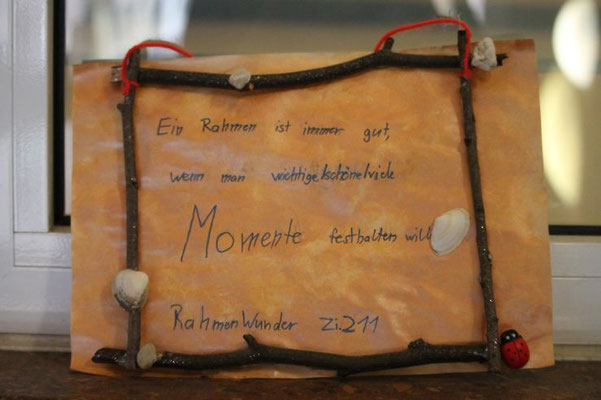 Ein Rahmen ist immer gut,
wenn man wichtige/schöne/viele
Momente festhalten will
RahmenWunder Zi.211